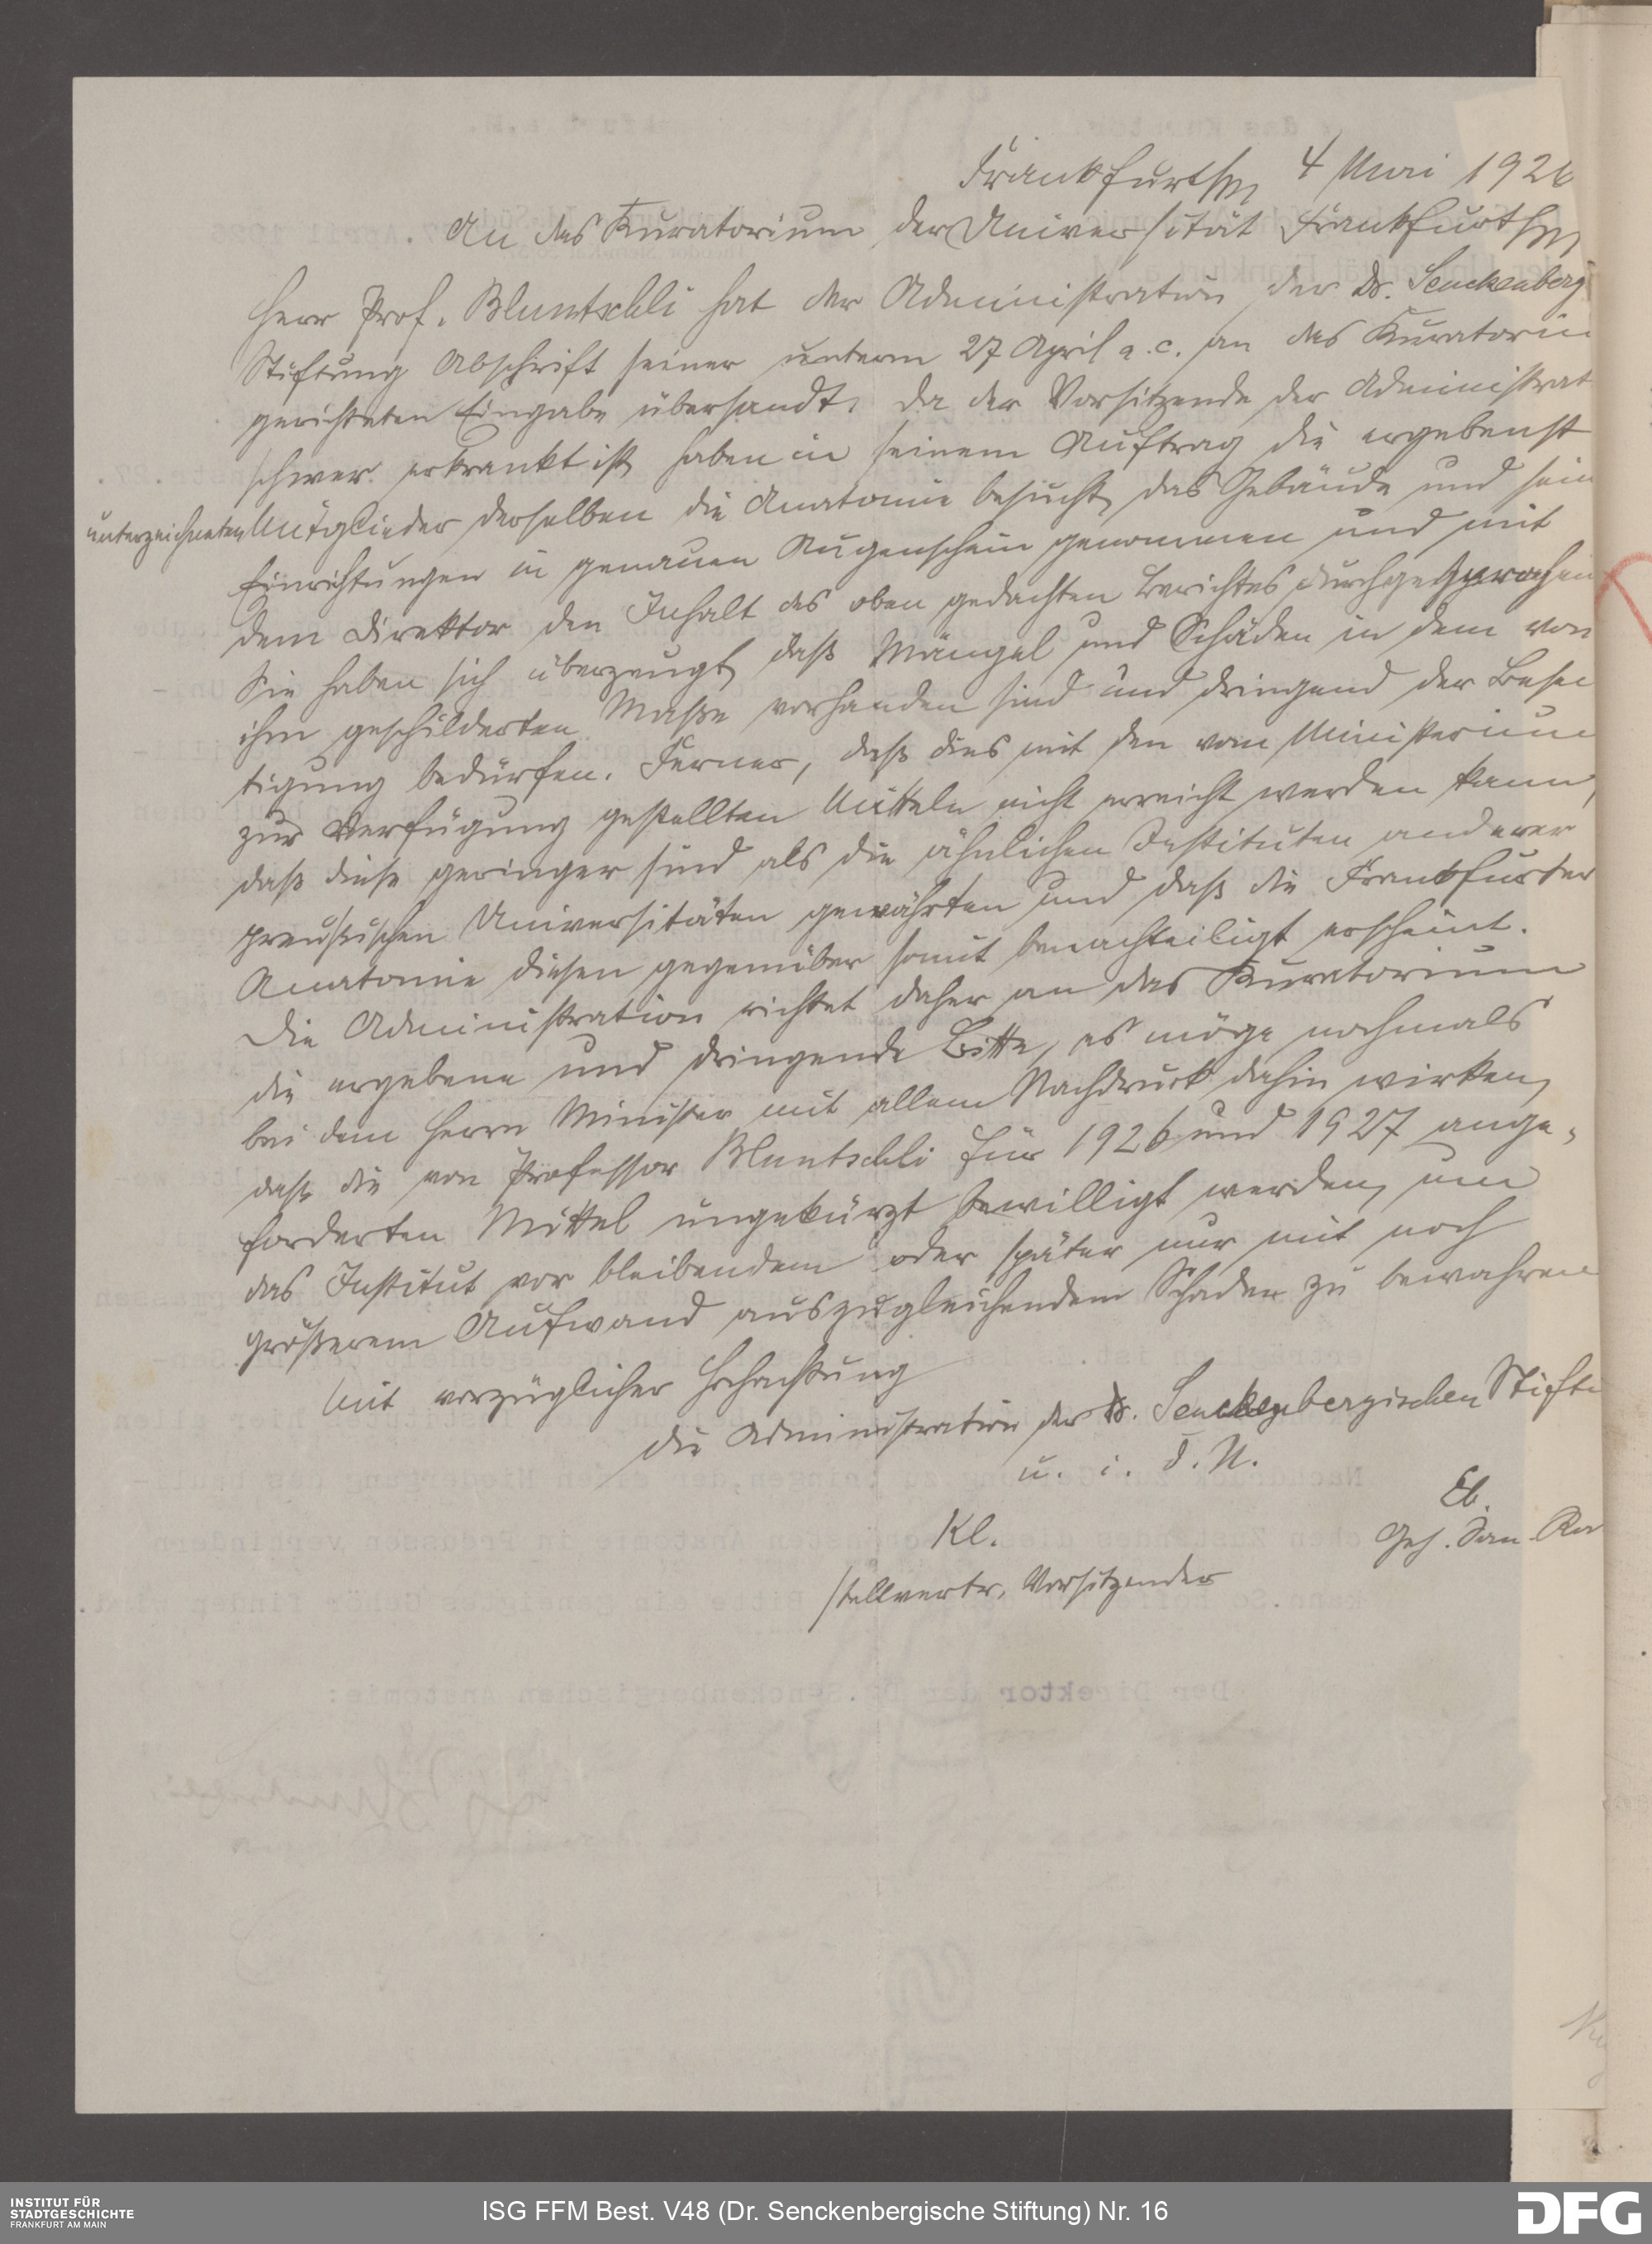 Frankfurt a/M 4 Mai 1926
An das Kuratorium der Universität Frankfurt a/M
Herr Prof. Bluntschli hat der Administration der Dr. Senckenberg
Stiftung Abschrift seiner unterm 27 April a.c. an das Kuratoriu
gerichteten Eingabe übersandt. Da der Vorsitzende der Administrat
schwer erkrankt ist, haben in seinem Auftrag die ergebenst
unterzeichneten Mitglieder derselben die Anatomie besucht, das Gebäude und sein
Einrichtungen in genauen Augenschein genommen und mit
dem Direktor den Inhalt des oben gedachten Berichtes durchgesprochen
Sie haben sich überzeugt, daß Mängel und Schäden in dem von
ihm geschilderten Maße vorhanden sind und dringend der Besei
tigung bedürfen. Ferner, daß dies mit den vom Ministerium
zur Verfügung gestellten Mitteln nicht erreicht werden kann,
daß diese geringer sind als die ähnlichen Instituten anderer
preußischen Universitäten gewährten und daß die Frankfurter
Anatomie diesen gegenüber somit benachteiligt erscheint.
Die Administration richtet daher an das Kuratorium
die ergebene und dringende Bitte, es möge nochmals
bei dem Herrn Minister mit allem Nachdruck dahin wirken,
daß die von Professor Bluntschli für 1926 und 1927 ange-
forderten Mittel ungekürzt bewilligt werden, um
das Institut vor bleibendem oder später nur mit noch
größerem Aufwand auszugleichendem Schaden zu bewahren
Mit vorzüglicher Hochachtung
Die Administration der Dr. Senckenbergischen Stiftu
u. i. d. N.
Kl.
stellvertr. Vorsitzender
Eb.
Geh. San. Ra
INSTITUT FÜR
STADTGESCHICHTE
FRANKFURT AM MAIN
ISG FFM Best. V48 (Dr. Senckenbergische Stiftung) Nr. 16
DFG